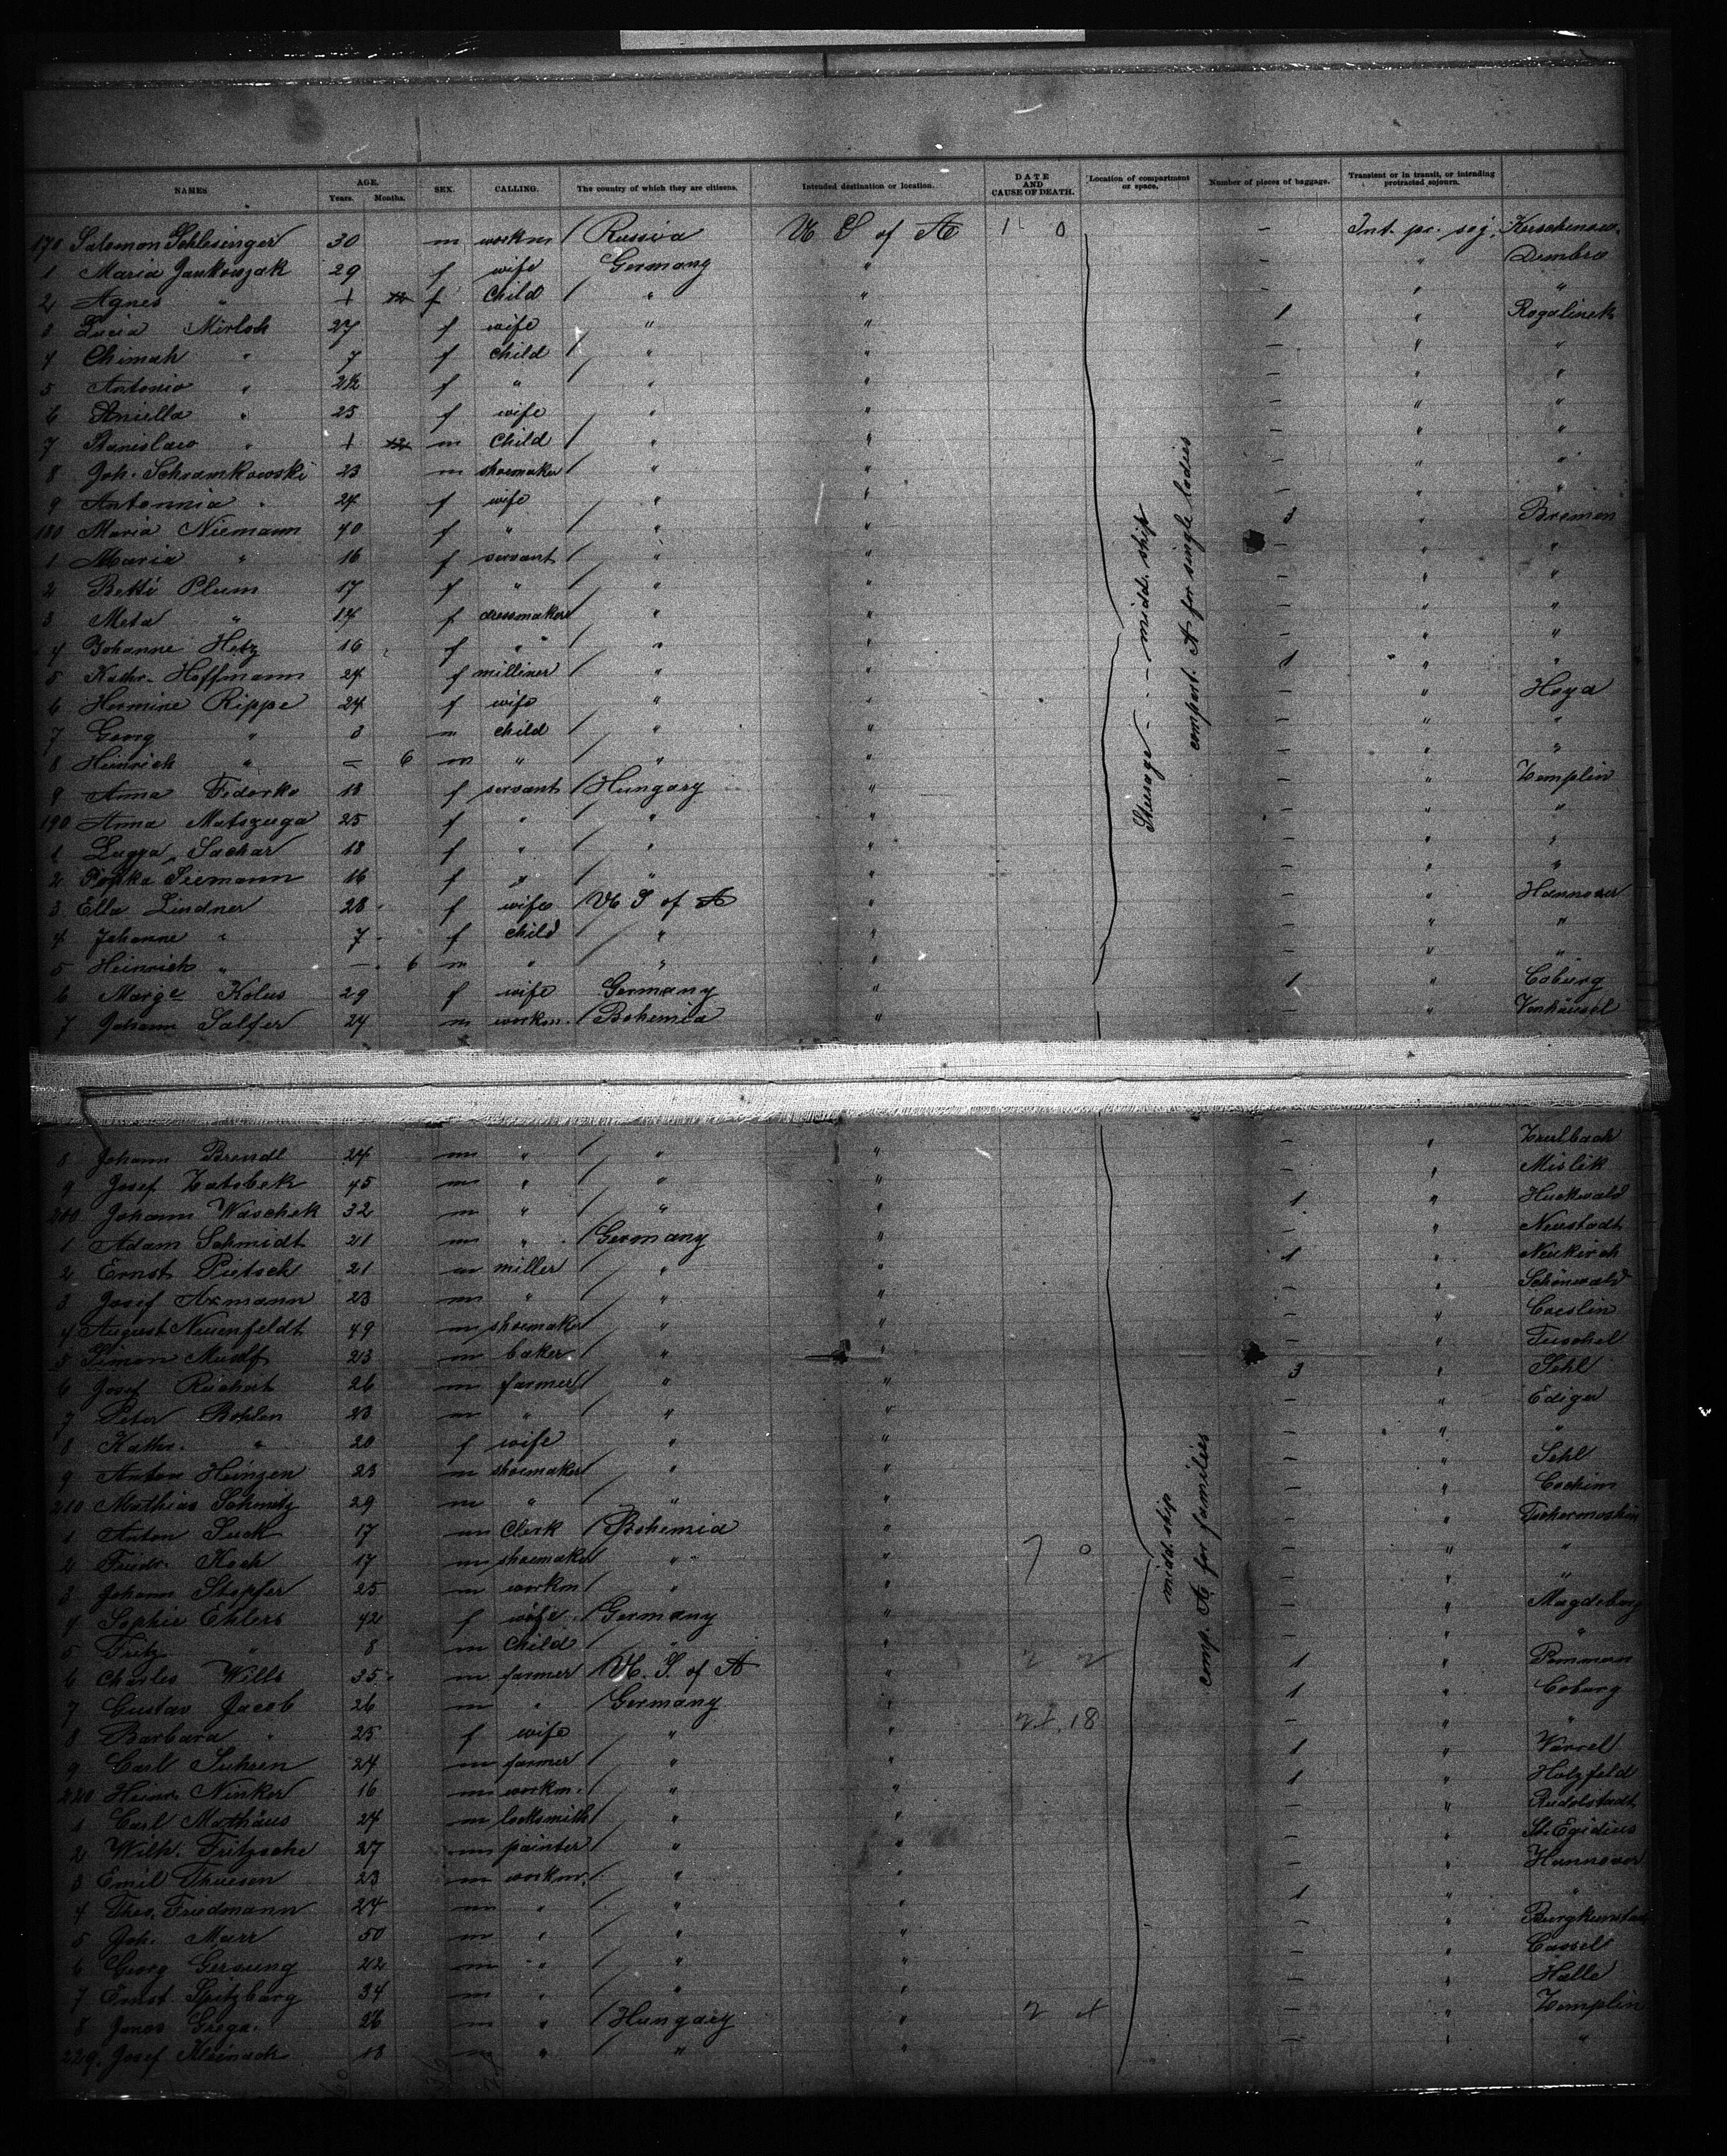 NAMES AGE. Years. Months. SEX. CALLING. The country of which they are citizens. Intended destination or location. DATE AND CAUSE OF DEATH. Location of compartment or space. Number of pieces of baggage. Transient or in transit, or intending protracted sojourn.
170 Salomon Schlesinger 30 m workm / Russia U S of A 1 0 – Int. pr. soj.
1 Maria Jankowzak 29 f wife Germany " – " Dembro
2 Agnes " 1 f child / " " – " "
3 Lucia Mirloch 27 f wife " " 1 " Rogalinek
4 Chimah " 7 f child / " " – " "
5 Antonio " f " / " " – " "
6 Aniella " 25 f wife " " – " "
7 Stanislaw " 1 m child / " " – " "
8 Joh. Schramkowski 23 m shoemaker / " " – " "
9 Antonnia " 24 f wife / " " – " "
180 Maria Niemann 40 f " / " " 3 " Bremen
1 Maria " 16 f servant / " " – " "
2 Betti Plum 17 f " / " " – " "
3 Meta " 14 f dressmaker / " " – " "
4 Johanne Hotz 16 f " / " " – " "
5 Kathr. Hoffmann 24 f milliner / " " 1 " "
6 Hermine Rippe 24 f wife " " – " Hoya
7 Georg " 3 m child / " " – " "
8 Heinrich " – 6 m " / " " – " "
9 Anna Fedorko 18 f servant / Hungary " – " Zemplin
190 Anna Matszuga 25 f " / " " – " "
1 Sachar 18 f " / " " – " "
2 Siemann 16 f " / " " – " "
3 Ella Lindner 28 f wife / U S of A " – " Hannover
4 Johanne " 7 f child / " " – " "
5 Heinrich " – 6 m " " " – " "
6 Marge Kolus 29 f wife Germany " 1 " Coburg
7 Johann Salfer 24 m workm. / Bohemia " – "
Steerage – midd. ship
compart. A for single ladies
8 Johann Brendl 24 m " / " " – "
9 Josef Zatobek 45 m " / " " – " Mislik
200 Johann Waschek 32 m " / " " 1 " Huckwald
1 Adam Schmidt 21 m " / Germany " – " Neustadt
2 Ernst Pietsch 21 m miller / " " 1 " Neukirch
3 Josef Axmann 23 m " / " " – " Schönwald
4 August Neuenfeldt 49 m shoemaker / " " – " Coeslin
5 Simon Mudf 23 m baker / " " – " Tuschel
6 Josef Reichert 26 m farmer / " " 3 " Sehl
7 Peter Bohlen 23 m " / " " – " Ediger
8 Kathr. " 20 f wife " " – " "
9 Anton Heinzen 23 m shoemaker / " " – " Sehl
210 Mathias Schmitz 29 m " / " " – " Cochim
1 Anton Suck 17 m Clerk / Bohemia " – "
2 Friedr. Koch 17 m shoemaker / " " 7 0 – " "
3 Johann Stopfer 25 m workm / " " – " "
4 Sophie Ehlers 42 f wife Germany " – " Magdeburg
5 Fritz " 8 m child / " " – " "
6 Charles Wills 35 m farmer / U. S. of A " 2 2 1 " Pommern
7 Gustav Jacob 26 m " / Germany " 1 " Coburg
8 Barbara " 25 f wife " " 18 – " "
9 Carl Suhren 24 m farmer / " " 1 " Varrel
220 Heinr. Ninker 16 m workm. / " " 1 " Holzfeld
1 Carl Mathäus 24 m locksmith / " " – " Rudolstadt
2 Wilh. Fritzsche 27 m painter / " " – " St. Egidius
3 Emil Thuesen 23 m workm. / " " – " Hannover
4 Theo. Friedmann 24 m " / " " 1 " "
5 Joh. Marr 50 m " / " " – " Burgkunstadt
6 Georg Gersung 22 m " / " " – " Cassel
7 Ernst Spitzbarg 34 m " / " " – " Halle
8 Janos Grega 26 m " / Hungary " – " Zemplin
229. Josef Kleinach 18 m " / " " – " "
midd. ship
comp. A for families